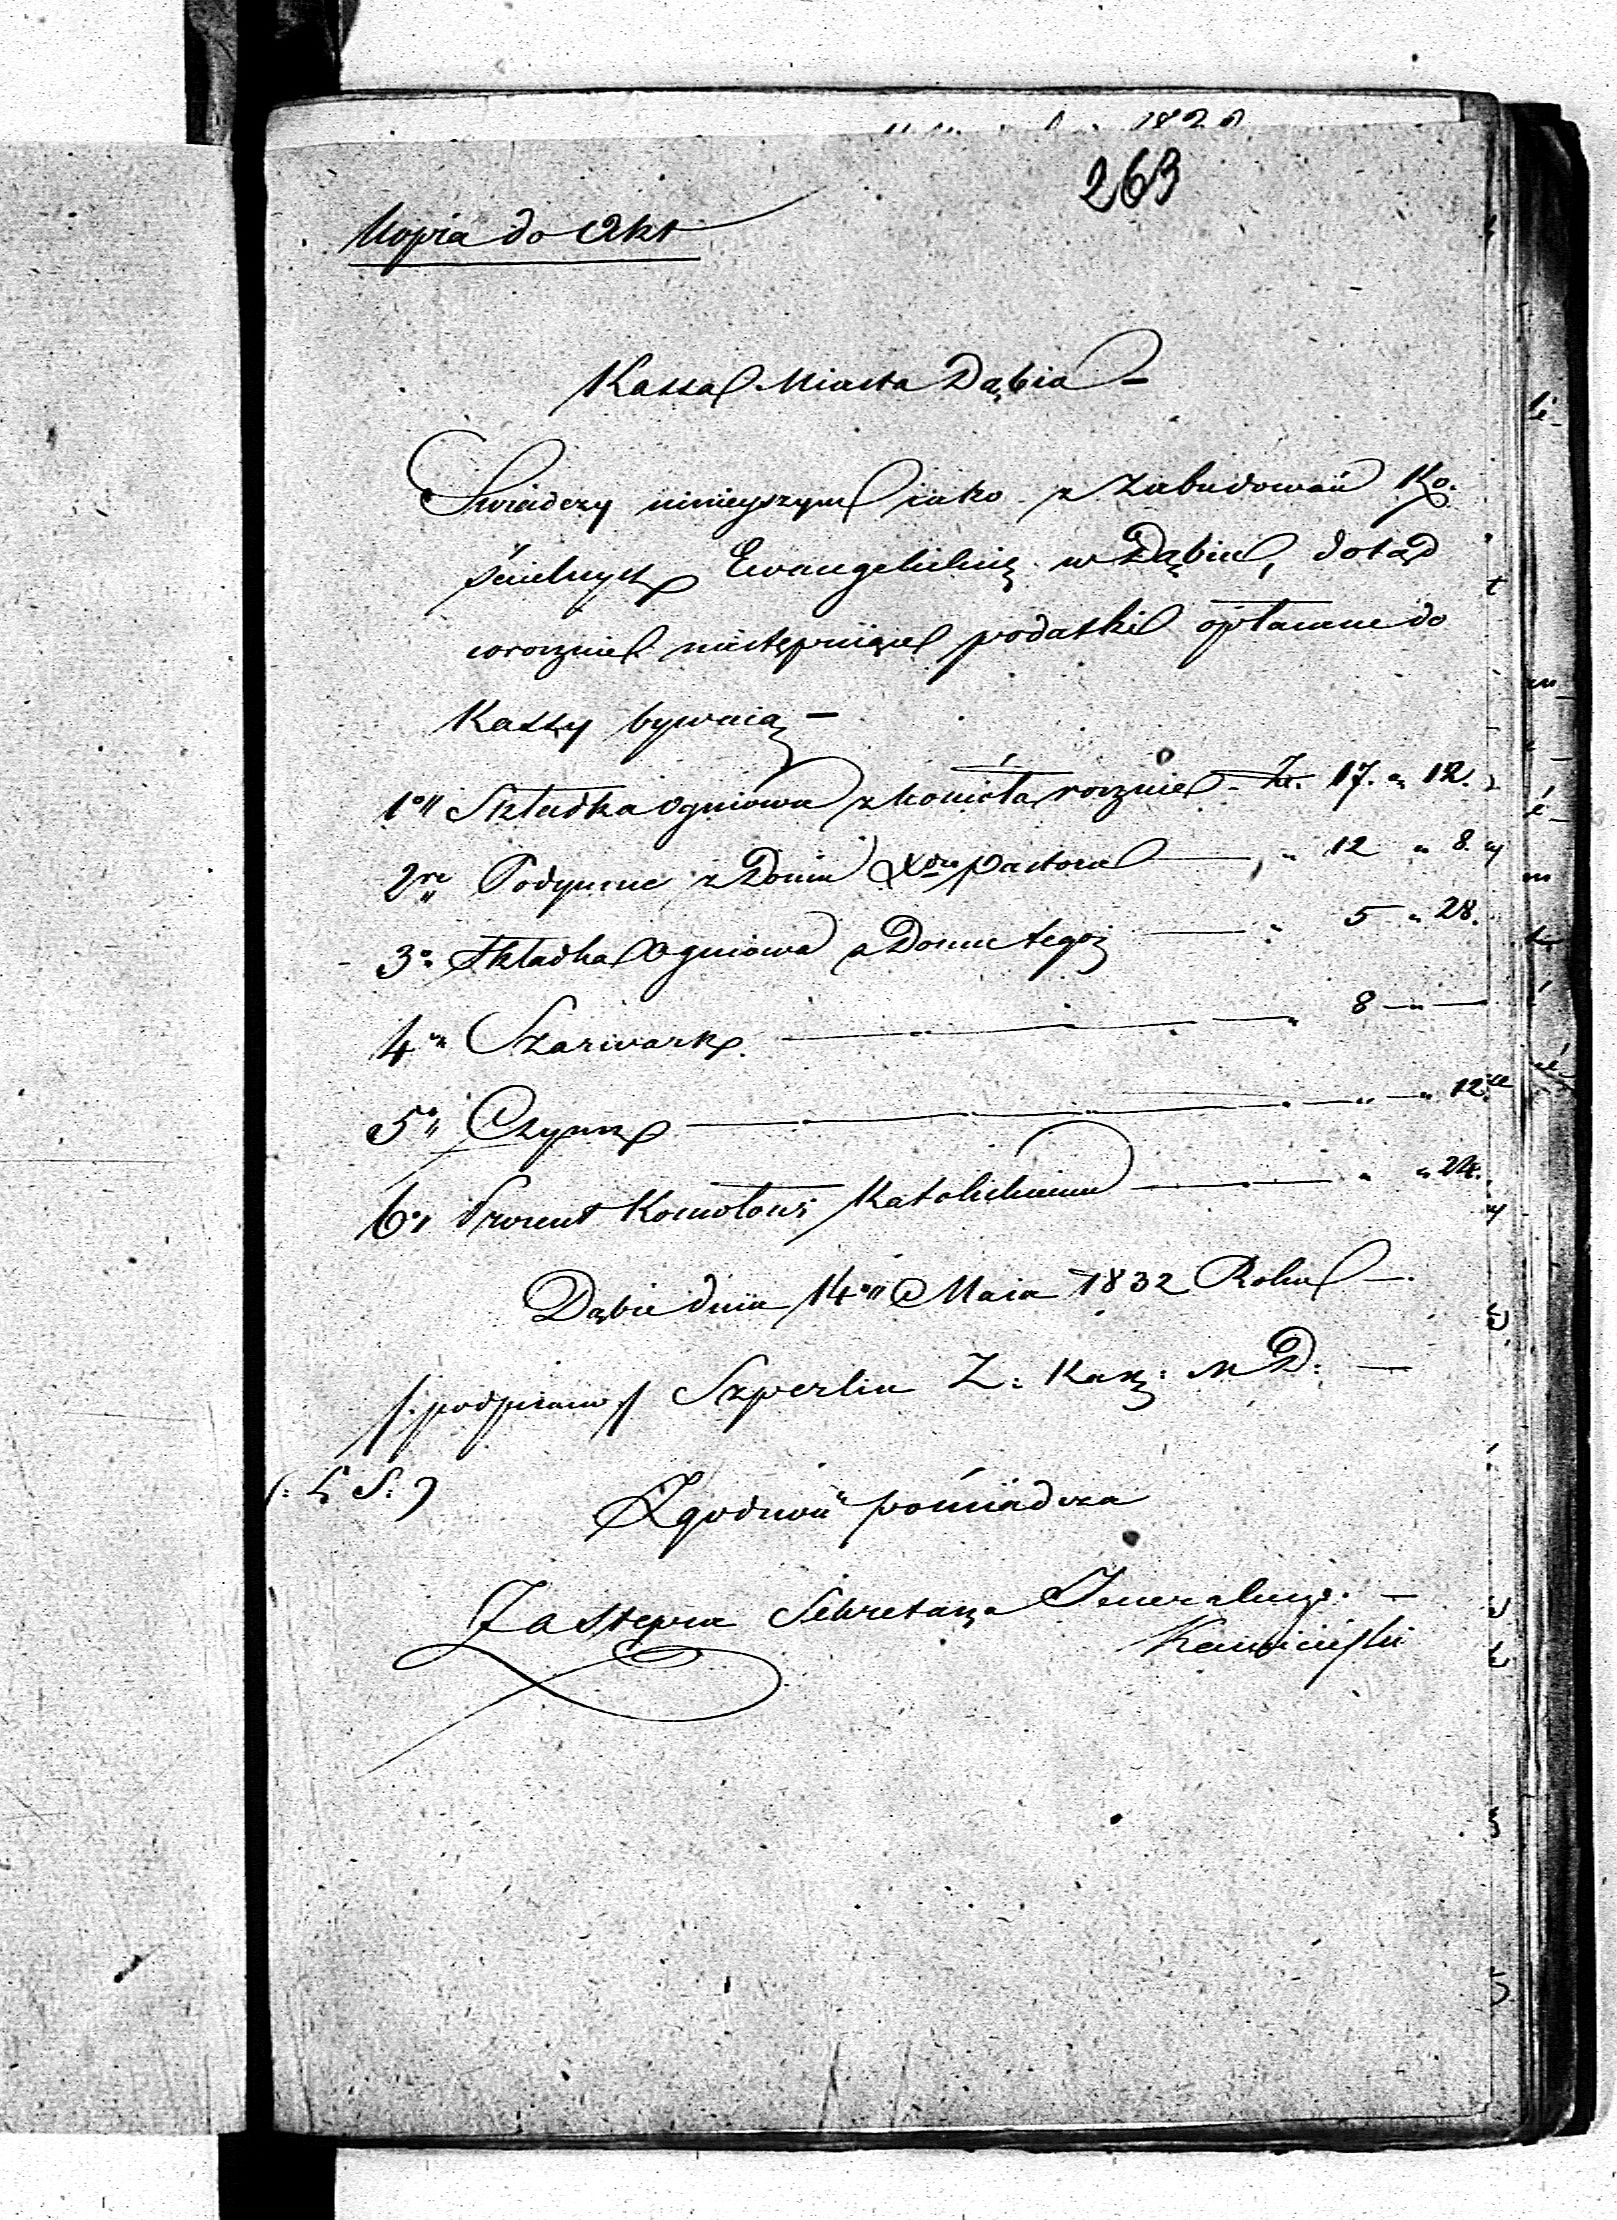 263
Kopia do Akt
Kassa Miasta Dąbia —
Swiadczy ninieyszym iako z Zabudowań Ko-
ścielnych Ewangelickich w Dąbiu, dotąd
corocznie następuiące podatki opłacane do
Kassy bywaią —
1° Składka Ogniowa z kościoła rocznie - Zł. 17. „ 12.
2re Podymne z Domu Xdza Pastora — „ 12 „ 8.
3° Składka Ogniowa z Domu tegoż — „ 5 „ 28.
4° Szarwark — „ 8 — „ —
5° Czynsz — „ — „ 12.
6° Procent Kościołowi Katolickiemu — „ „ 24.
Dąbie dnia 14° Maia 1832 Roku —
/: podpisano :/ Szperlin Z: Kass: M D: —
(: L. S. :)
Zgodność poświadcza
Zastępca Sekretarza Jeneralnego —